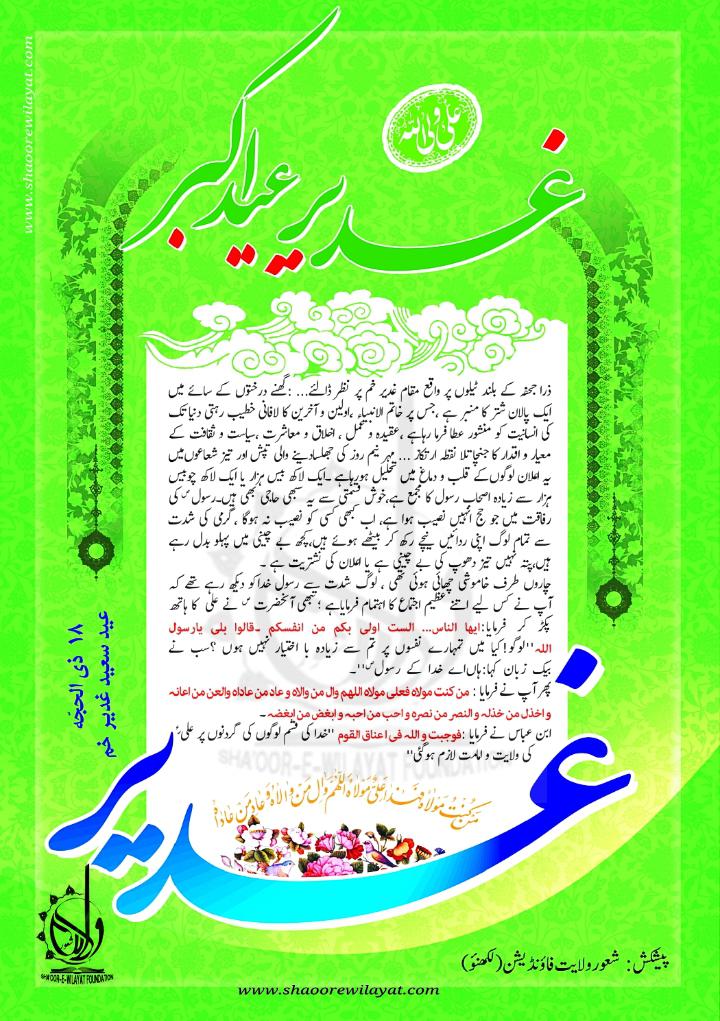 www.shaoorewilayat.com
علی ولی اللہ
غدیر عید اکبر
ذرا جحفہ کے بلند ٹیلوں پر واقع مقام غدیر خم پر نظر ڈالئے... :گھنے درختوں کے سائے میں
ایک پالان شتر کا منبر ہے ،جس پر خاتم الانبیاء ،اولین و آخرین کا لافانی خطیب رہتی دنیا تک
کی انسانیت کو منشور عطا فرما رہاہے ،عقیدہ و عمل ، اخلاق و معاشرت ،سیاست و ثقافت کے
معیار و اقدار کا جنچا تلا نقطہ ارتکاز ... مہر نیم روز کی جھلسادینے والی تپش اور تیز شعاعوں میں
یہ اعلان لوگوں کے قلب و دماغ میں تحلیل ہورہاہے ۔ایک لاکھ بیس ہزار یا ایک لاکھ چوبیس
ہزار سے زیادہ اصحاب رسول کا مجمع ہے،خوش قسمتی سے یہ سبھی حاجی بھی ہیں۔رسول ؐ کی
رفاقت میں جو حج انہیں نصیب ہوا ہے، اب کبھی کسی کو نصیب نہ ہوگا ،گرمی کی شدت
سے تمام لوگ اپنی ردائیں نیچے رکھ کر بیٹھے ہوئے ہیں،کچھ بے چینی میں پہلو بدل رہے
ہیں،پتہ نہیں تیز دھوپ کی بے چینی ہے یا اعلان کی نشتریت ہے ۔
چاروں طرف خاموشی چھائی ہوئی تھی ، لوگ شدت سے رسول خدا کو دیکھ رہے تھے کہ
آپ نے کس لیے اتنے عظیم اجتماع کا اہتمام فرمایاہے ؛ تبھی آنحضرت ؐ نے علی کا ہاتھ
پکڑ کر فرمایا:ایھا الناس... الست اولی بکم من انفسکم ۔قالوا بلی یارسول
اللہ"لوگو!کیا میں تمہارے نفسوں پر تم سے زیادہ با اختیار نہیں ہوں ؟سب نے
بیک زبان کہا:ہاں اے خدا کے رسولؐ"۔
پھر آپ نے فرمایا : من کنت مولاہ فعلی مولاہ اللھم وال من والاہ و عاد من عاداہ والعن من اعانہ
و اخذل من خذلہ و النصر من نصرہ و احب من احبہ و ابغض من ابغضہ ۔
ابن عباس نے فرمایا :فوجبت و اللہ فی اعناق القوم "خدا کی قسم لوگوں کی گردنوں پر علیؑ
کی ولایت و امامت لازم ہوگئی"
SHA'OOR-E-WILAYAT FOUNDATION
من کنت مولاه فهذا علی مولاه اللهم وال من والاه وعاد من عاداه
۱۸ ذی الحجه
عید سعید غدیر خم
غدیر
SHA'OOR-E-WILAYAT FOUNDATION
پیشکش : شعور ولایت فاؤنڈیشن(لکھنؤ)
www.shaoorewilayat.com